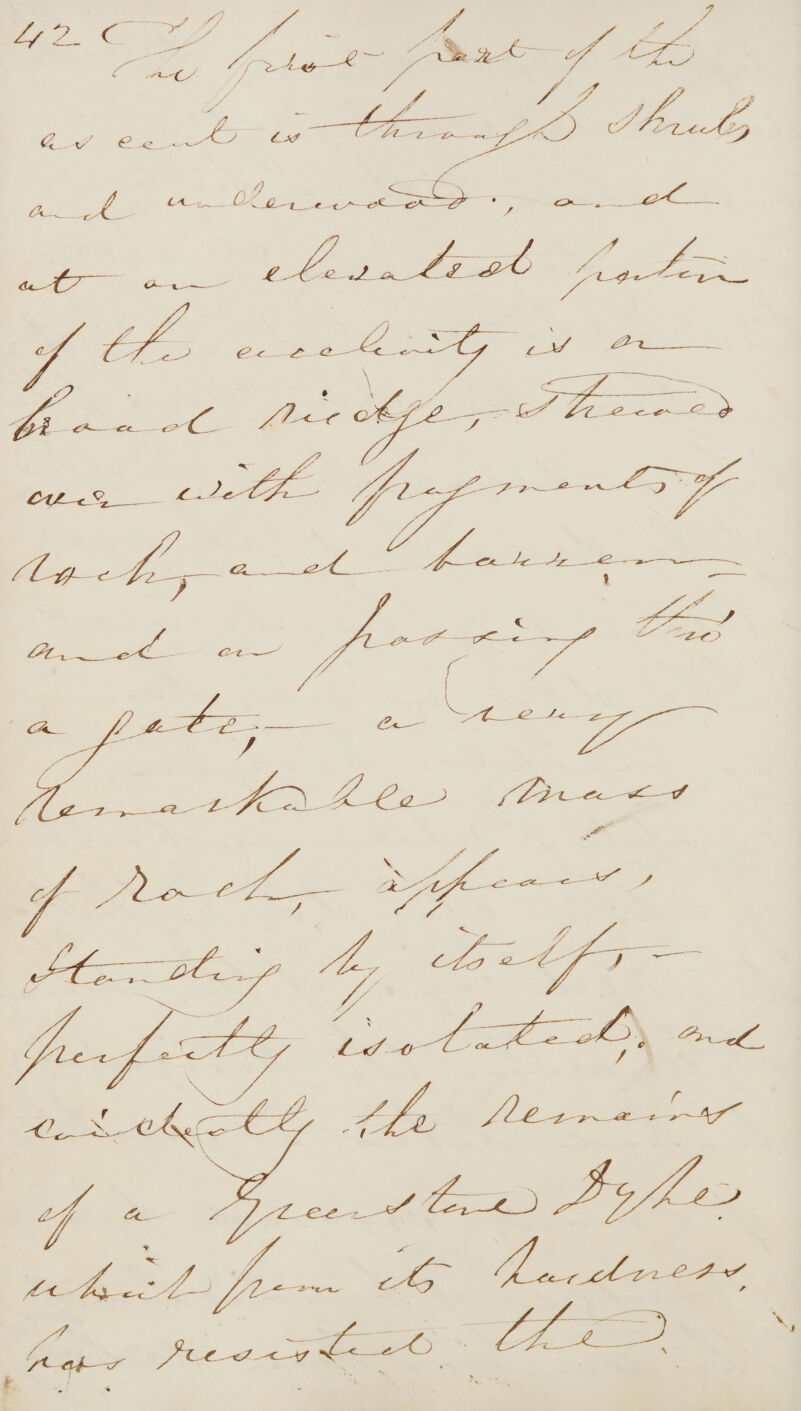 42 The first part of the
ascent is through shrubs
and underwood, and
at an elevated portion
of the acclivity is a
broad ridge, strewed
over with fragments of
rock, and barren
and on passing thro'
a gate, a very
remarkable mass
of rock, appears,
standing by itself,
perfectly isolated, and
evidently the remains
of a Greenstone Dyke
which from its hardness,
has resisted the